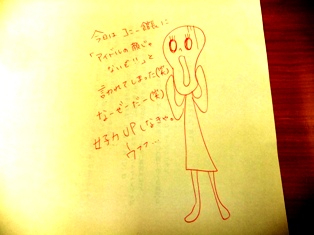 今日は
「アイドルの顔じゃ
ないぞ!!」と
言われてしまった(笑)
なーぜーだー(笑)
女子力UPしなきゃ。
ウァァ…